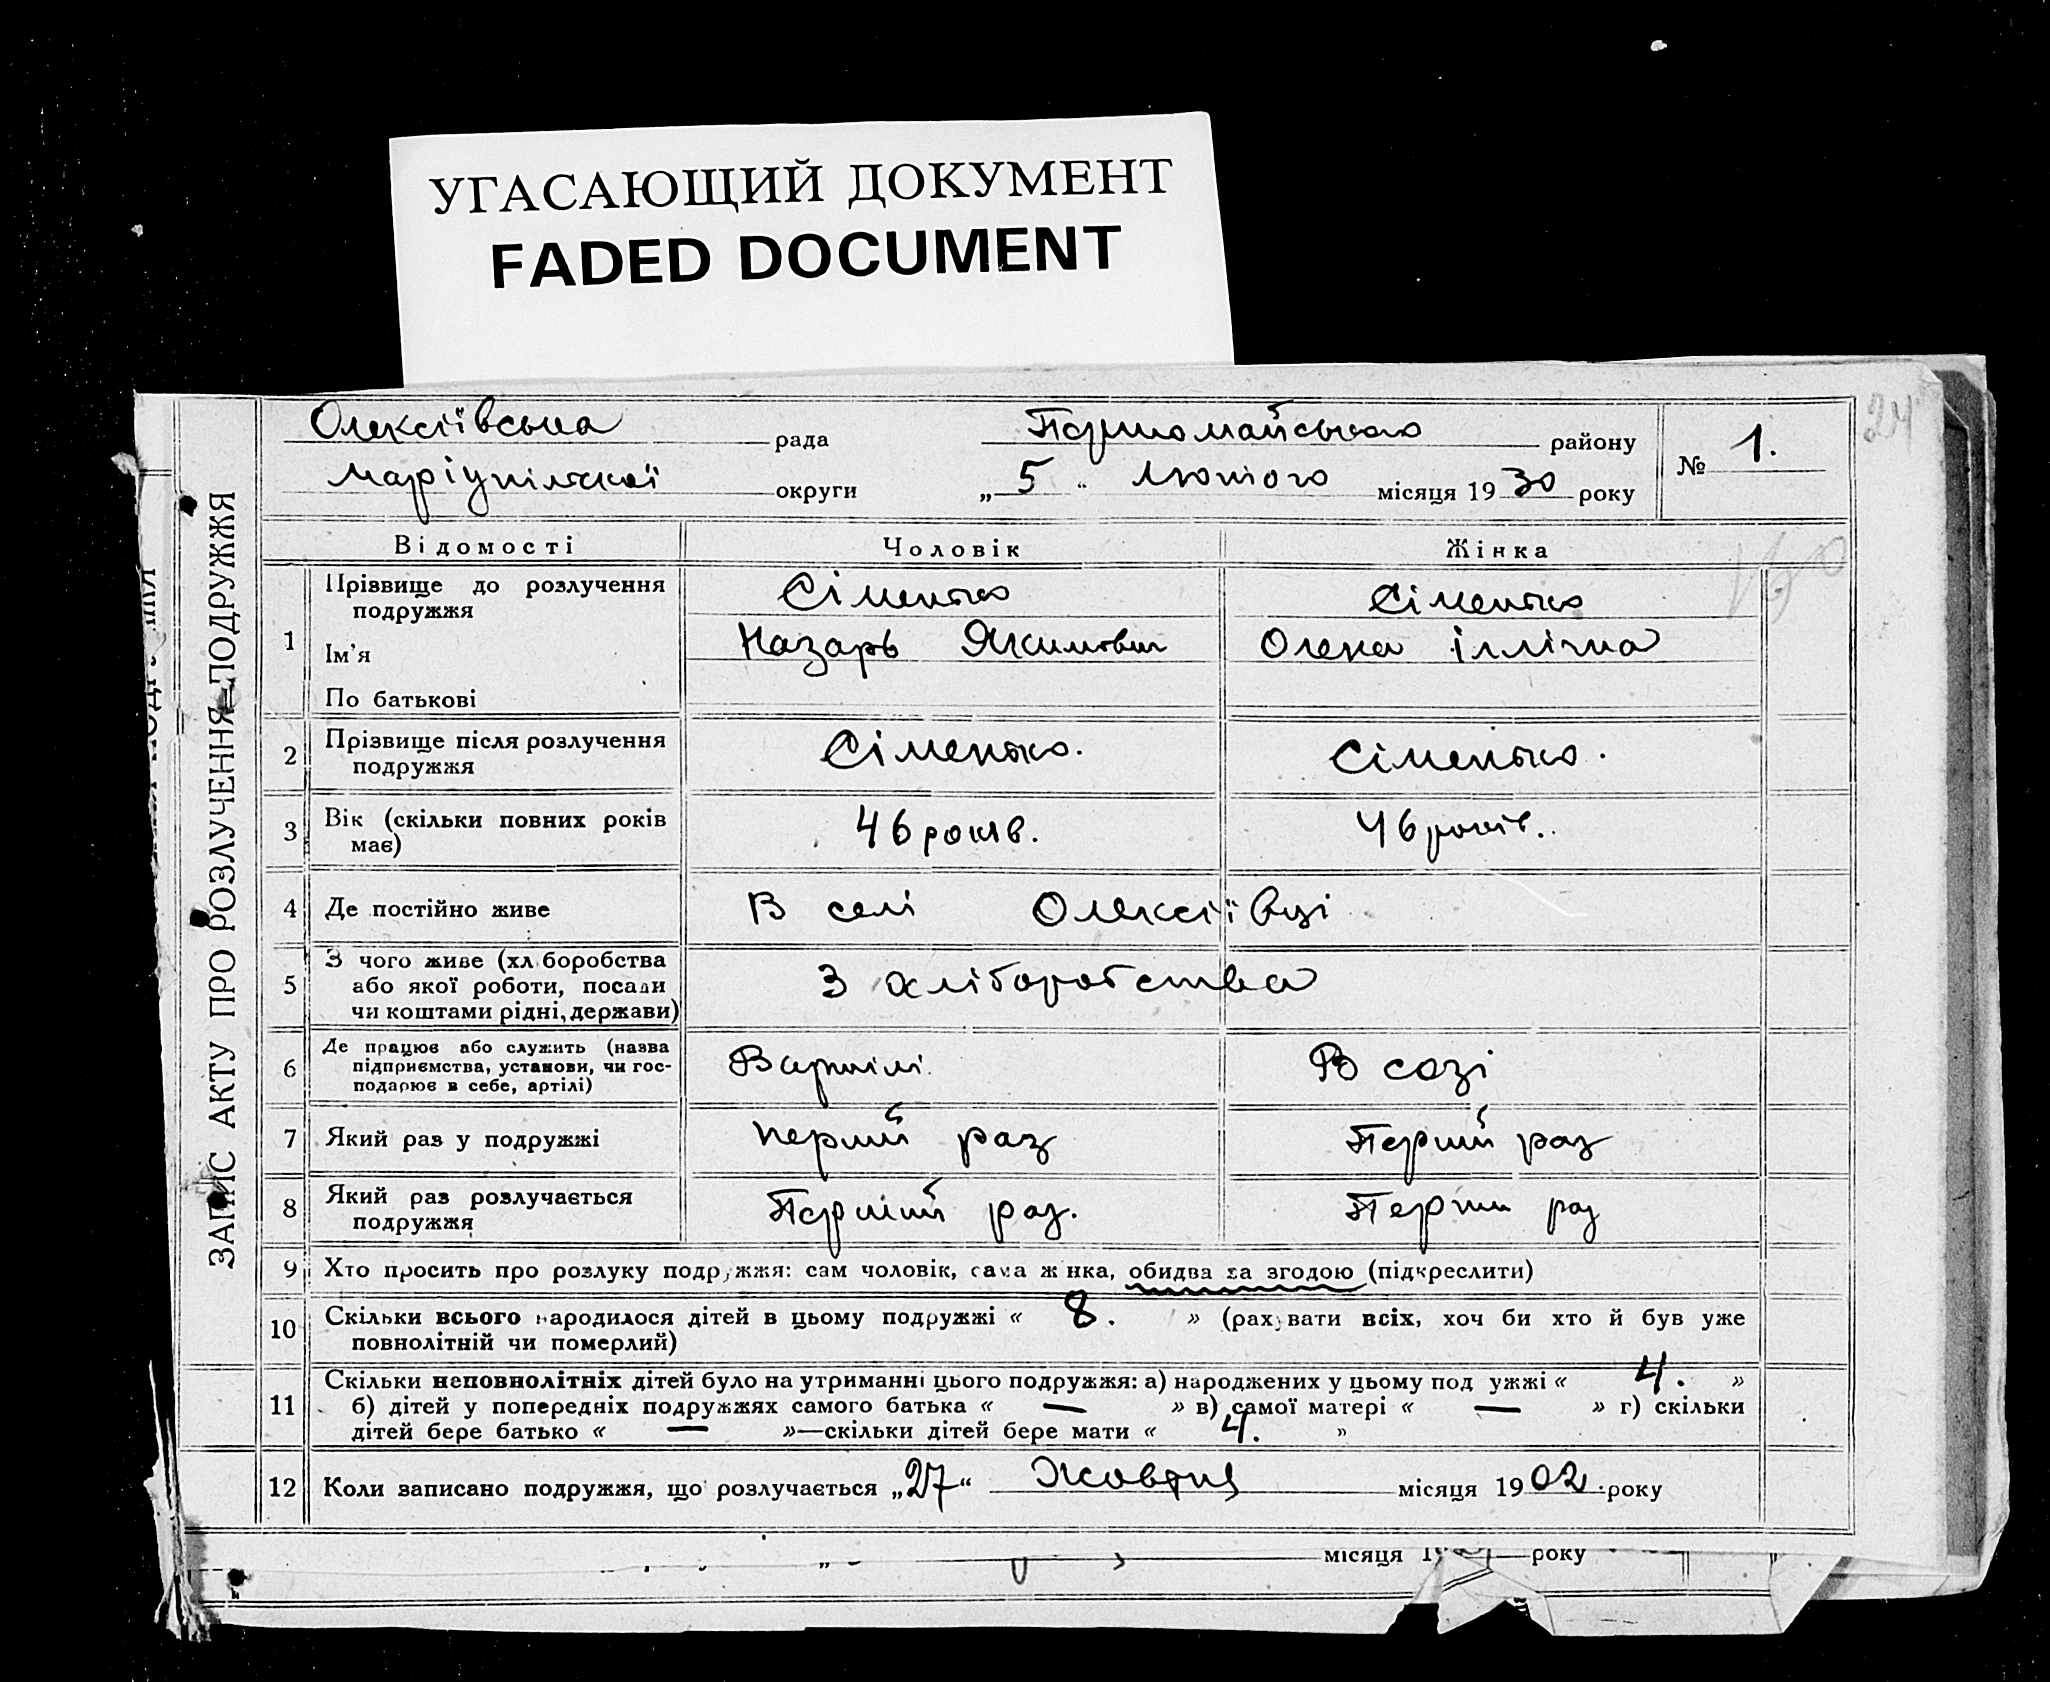 УГАСАЮЩИЙ ДОКУМЕНТ
FADED DOCUMENT
24
ЗАПИС АКТУ ПРО РОЗЛУЧЕННЯ ПОДРУЖЖЯ
Олексіївська рада Першомайського району
№ 1.
Маріупільскої округи „5“ Лютого місяця 1930 року
Відомості Чоловік Жінка
1 Прізвище до розлучення подружжя Сіменько Сіменько
Ім'я Назарь Якимович Олена Іллічна
По батькові
2 Прізвище після розлучення подружжя Сіменько. Сіменько.
3 Вік (скільки повних років має) 46 років. 46 років.
4 Де постійно живе В селі Олексіївці
5 З чого живе (хліборобства або якої роботи, посади чи коштами рідні, держави) З хліборобства
6 Де працює або служить (назва підприємства, установи, чи господарює в себе, артілі) Вартілі. В созі
7 Який раз у подружжі перший раз Перший раз
8 Який раз розлучається подружжя Перший раз. Перши раз
9 Хто просить про розлуку подружжя: сам чоловік, сама жінка, обидва за згодою (підкреслити)
10 Скільки всього народилося дітей в цьому подружжі « 8. » (рахувати всіх, хоч би хто й був уже
повнолітній чи померлий)
11 Скільки неповнолітніх дітей було на утриманні цього подружжя: а) народжених у цьому подружжі « 4. »
б) дітей у попередніх подружжях самого батька « — » в) самої матері « — » г) скільки
дітей бере батько « — »—скільки дітей бере мати « 4. »
12 Коли записано подружжя, що розлучається „27“ Жовтня місяця 1902 року
місяця року